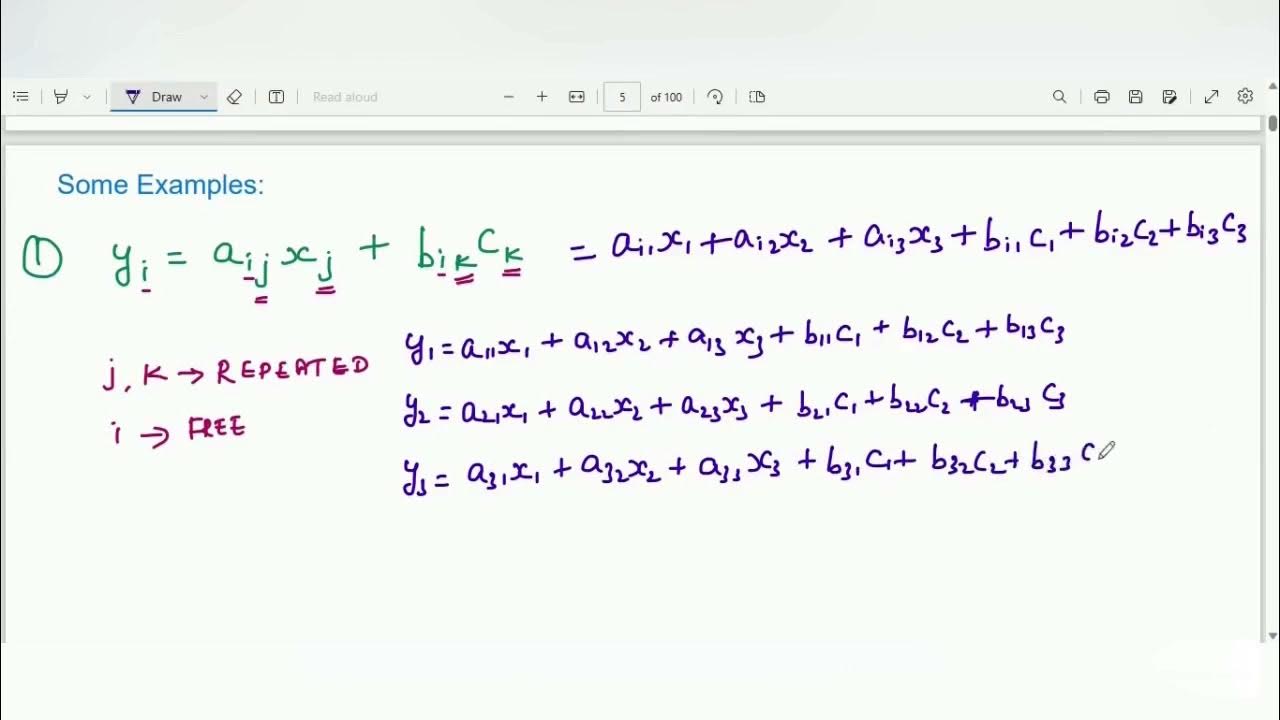 Draw
Read aloud
5 of 100
Some Examples:
① yᵢ = aᵢⱼxⱼ + bᵢₖcₖ = aᵢ₁x₁ + aᵢ₂x₂ + aᵢ₃x₃ + bᵢ₁c₁ + bᵢ₂c₂ + bᵢ₃c₃
y₁ = a₁₁x₁ + a₁₂x₂ + a₁₃x₃ + b₁₁c₁ + b₁₂c₂ + b₁₃c₃
j, k → REPEATED
y₂ = a₂₁x₁ + a₂₂x₂ + a₂₃x₃ + b₂₁c₁ + b₂₂c₂ + b₂₃c₃
i → FREE
y₃ = a₃₁x₁ + a₃₂x₂ + a₃₃x₃ + b₃₁c₁ + b₃₂c₂ + b₃₃c